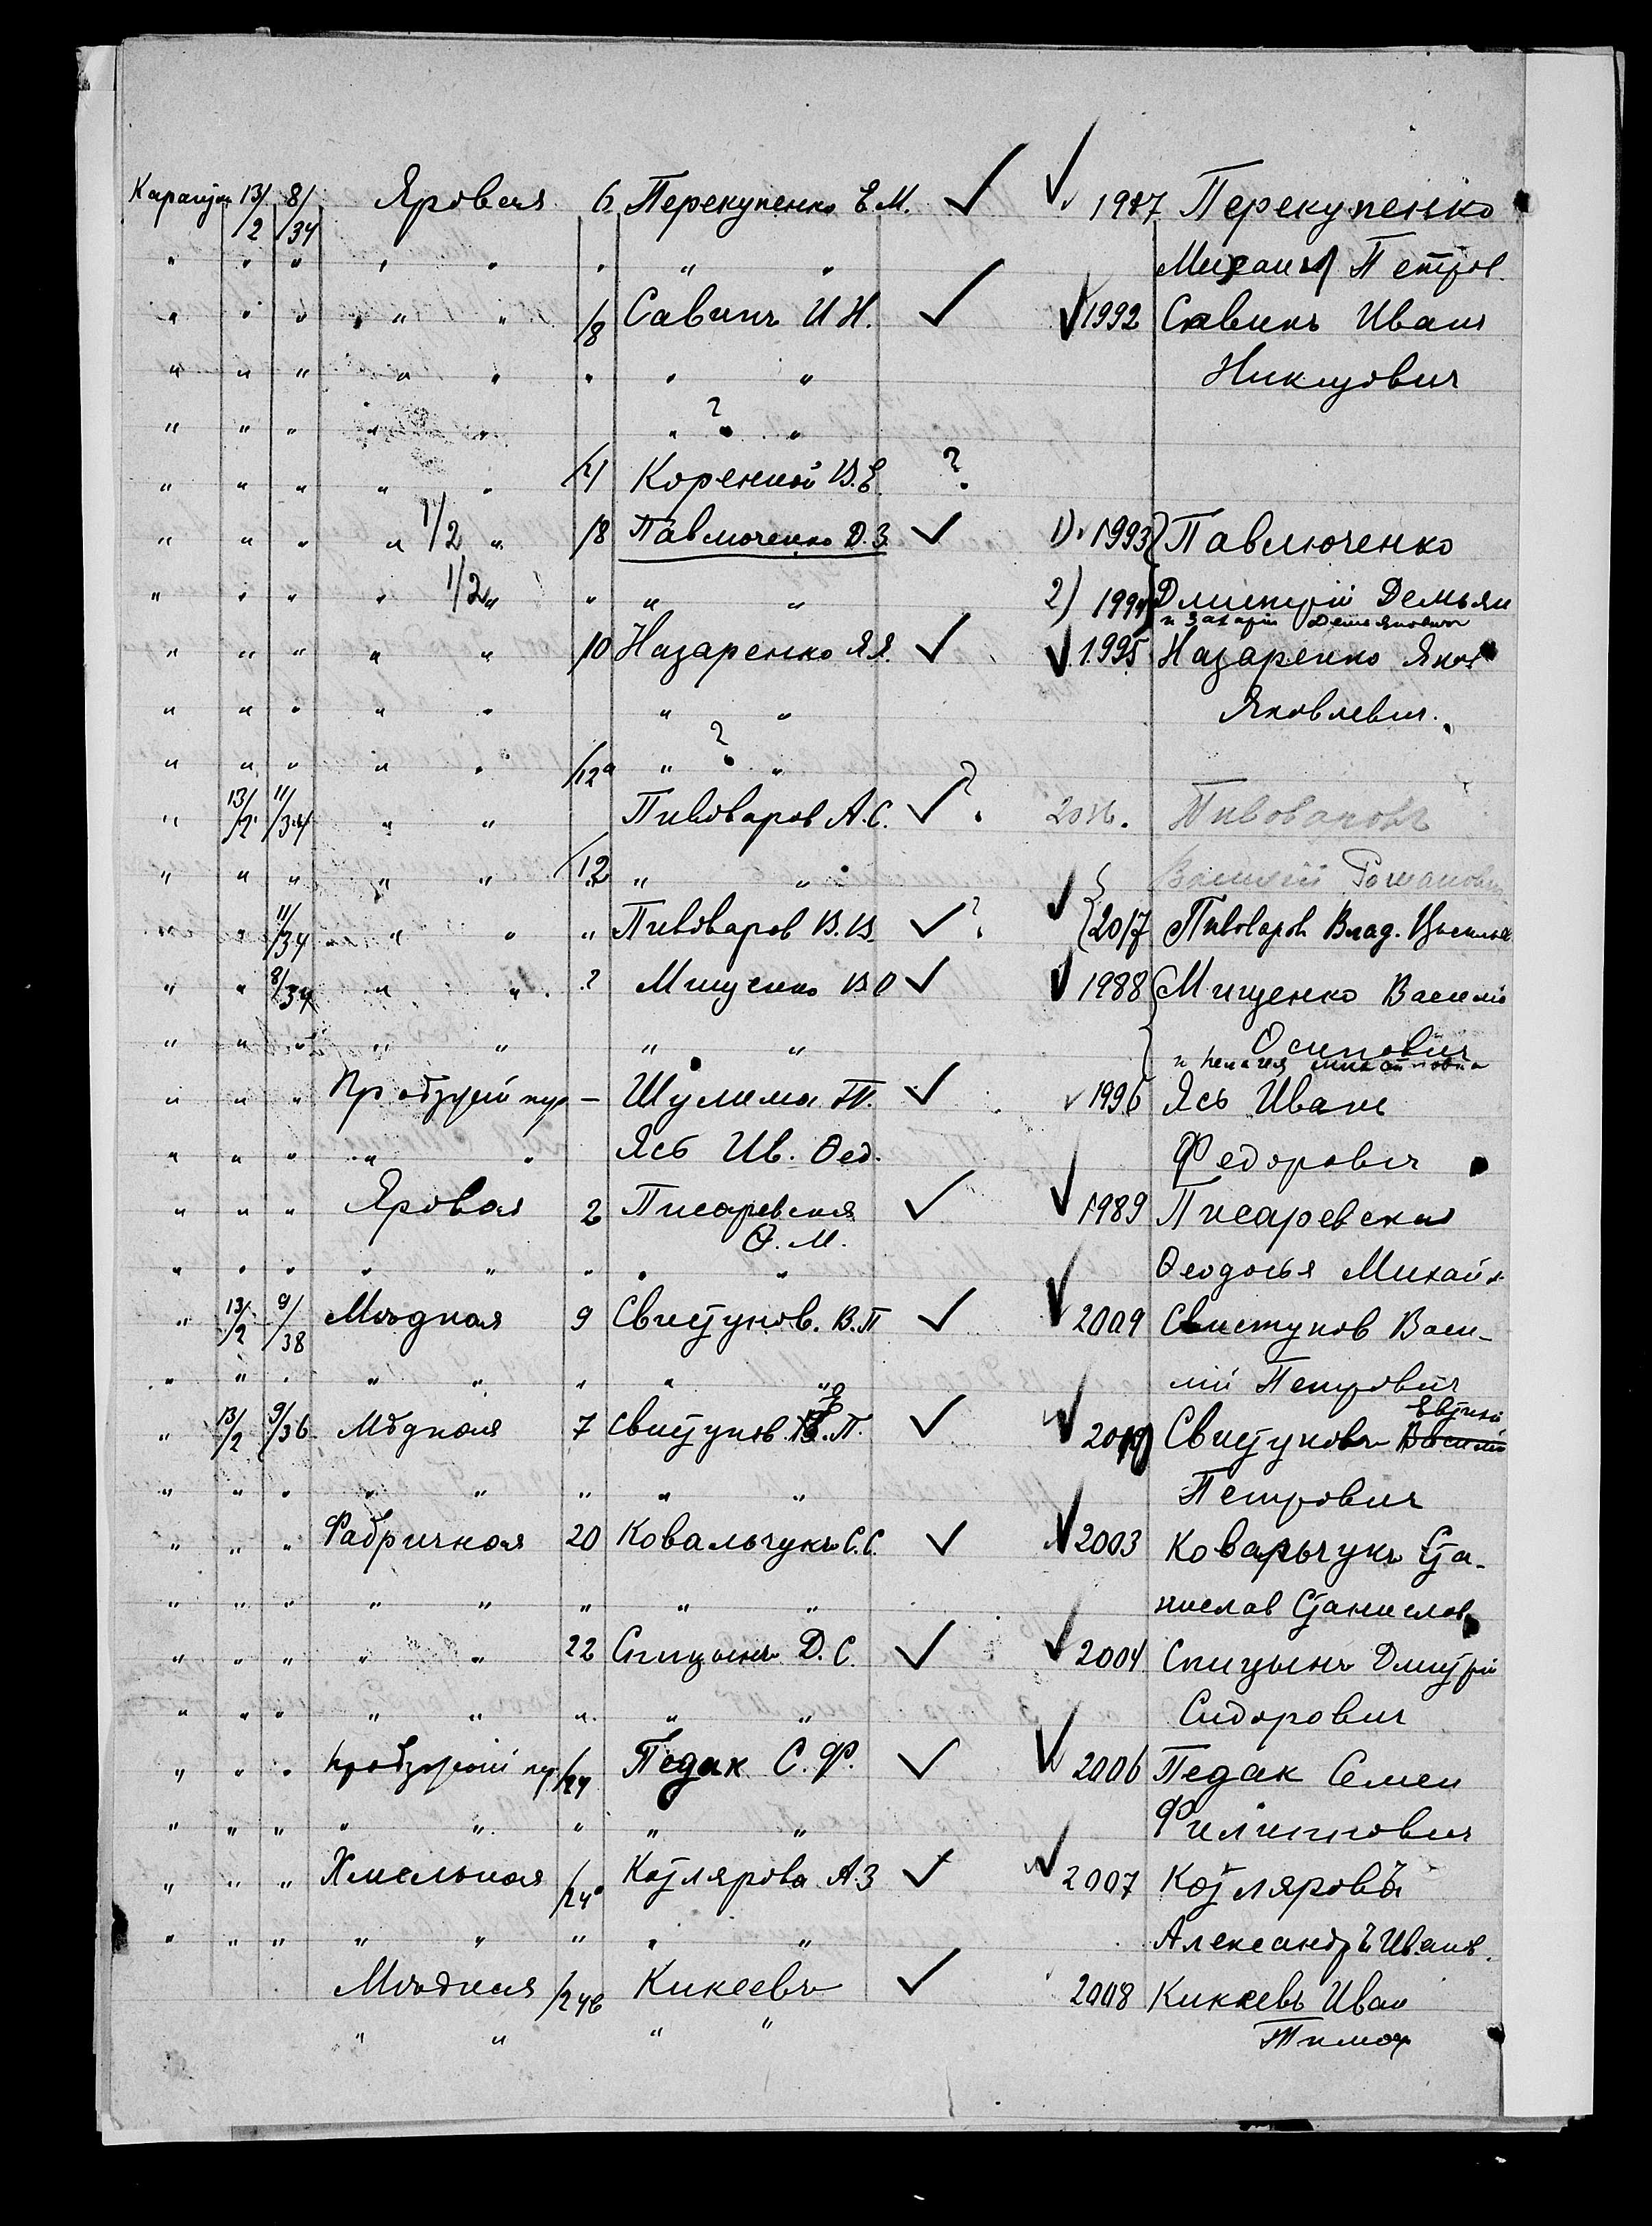 13/2 8/34 Яровая 6 Перекупенко Е.М. 1987 Перекупенко
" " " " " " " " Михаил Петров.
" " " " " /8 Савинъ И Н. 1992 Савинъ Иванъ
" " " " " " " " Никитович
" " " " " " ? "
" " " " " Коренной В.Е. ?
" " " " 1/2 " /8 Павлюченко Д.З. 1) 1993 Павлюченко
" " " " 1/2 " " " " 2) 1994 Дмитрій Демьян
и Захарій Демьянович
" " " " " /10 Назаренко Я.Я. 1995 Назаренко Яков
" " " " " " " Яковлевич.
" " " " " /12а " ? "
" 13/2 11/34 " " Пивоваров А.С. ? 2016. Пивоваровъ
" " " " " /12 " " Романович
" " 11/34 " " " Пивоваров В.В. ? 2017 Пивоваров Влад.
" " 8/34 " " ? Мищенко В О 1988 Мищенко Василій
" " " " " " " Осипович
и Пелагея
" " " – Шулима Т. 1996 Ясь Иванъ
" " " " " Ясь Ив. Ѳед. Федорович
" " " Яровая 2 Писаревская 1989 Писаревская
Ѳ. М.
" " " " " " " " Ѳеодосья Михайл.
" 13/2 9/38 Мѣдная 9 Свистунов. В.П 2009 Свистунов Васи-
" " " " " " " " лій Петрович
Евгеній
" 13/2 9/36 Мѣдная 7 Свистунов. Е.П. 2010 Свистуновъ Василій
" " " " " " " " Петрович
" " " Фабричная 20 Ковальчукъ С.С. 2003 Ковальчукъ Ста-
" " " " " " " " нислав Станислав
" " " " " 22 Спицынъ Д.С. 2004 Спицынъ Дмитрій
" " " " " " " " Сидорович
" " " /24 Педак С.Ф. 2006 Педак Семен
" " " " " " " " Филиппович
" " " Хмельная /24а Котлярова А.З 2007 Котляровъ
" " " " " " " " Александръ Иванов.
Мѣдная /24б Кикеевъ 2008 Кикеевъ Иван
" " " " Тимоф